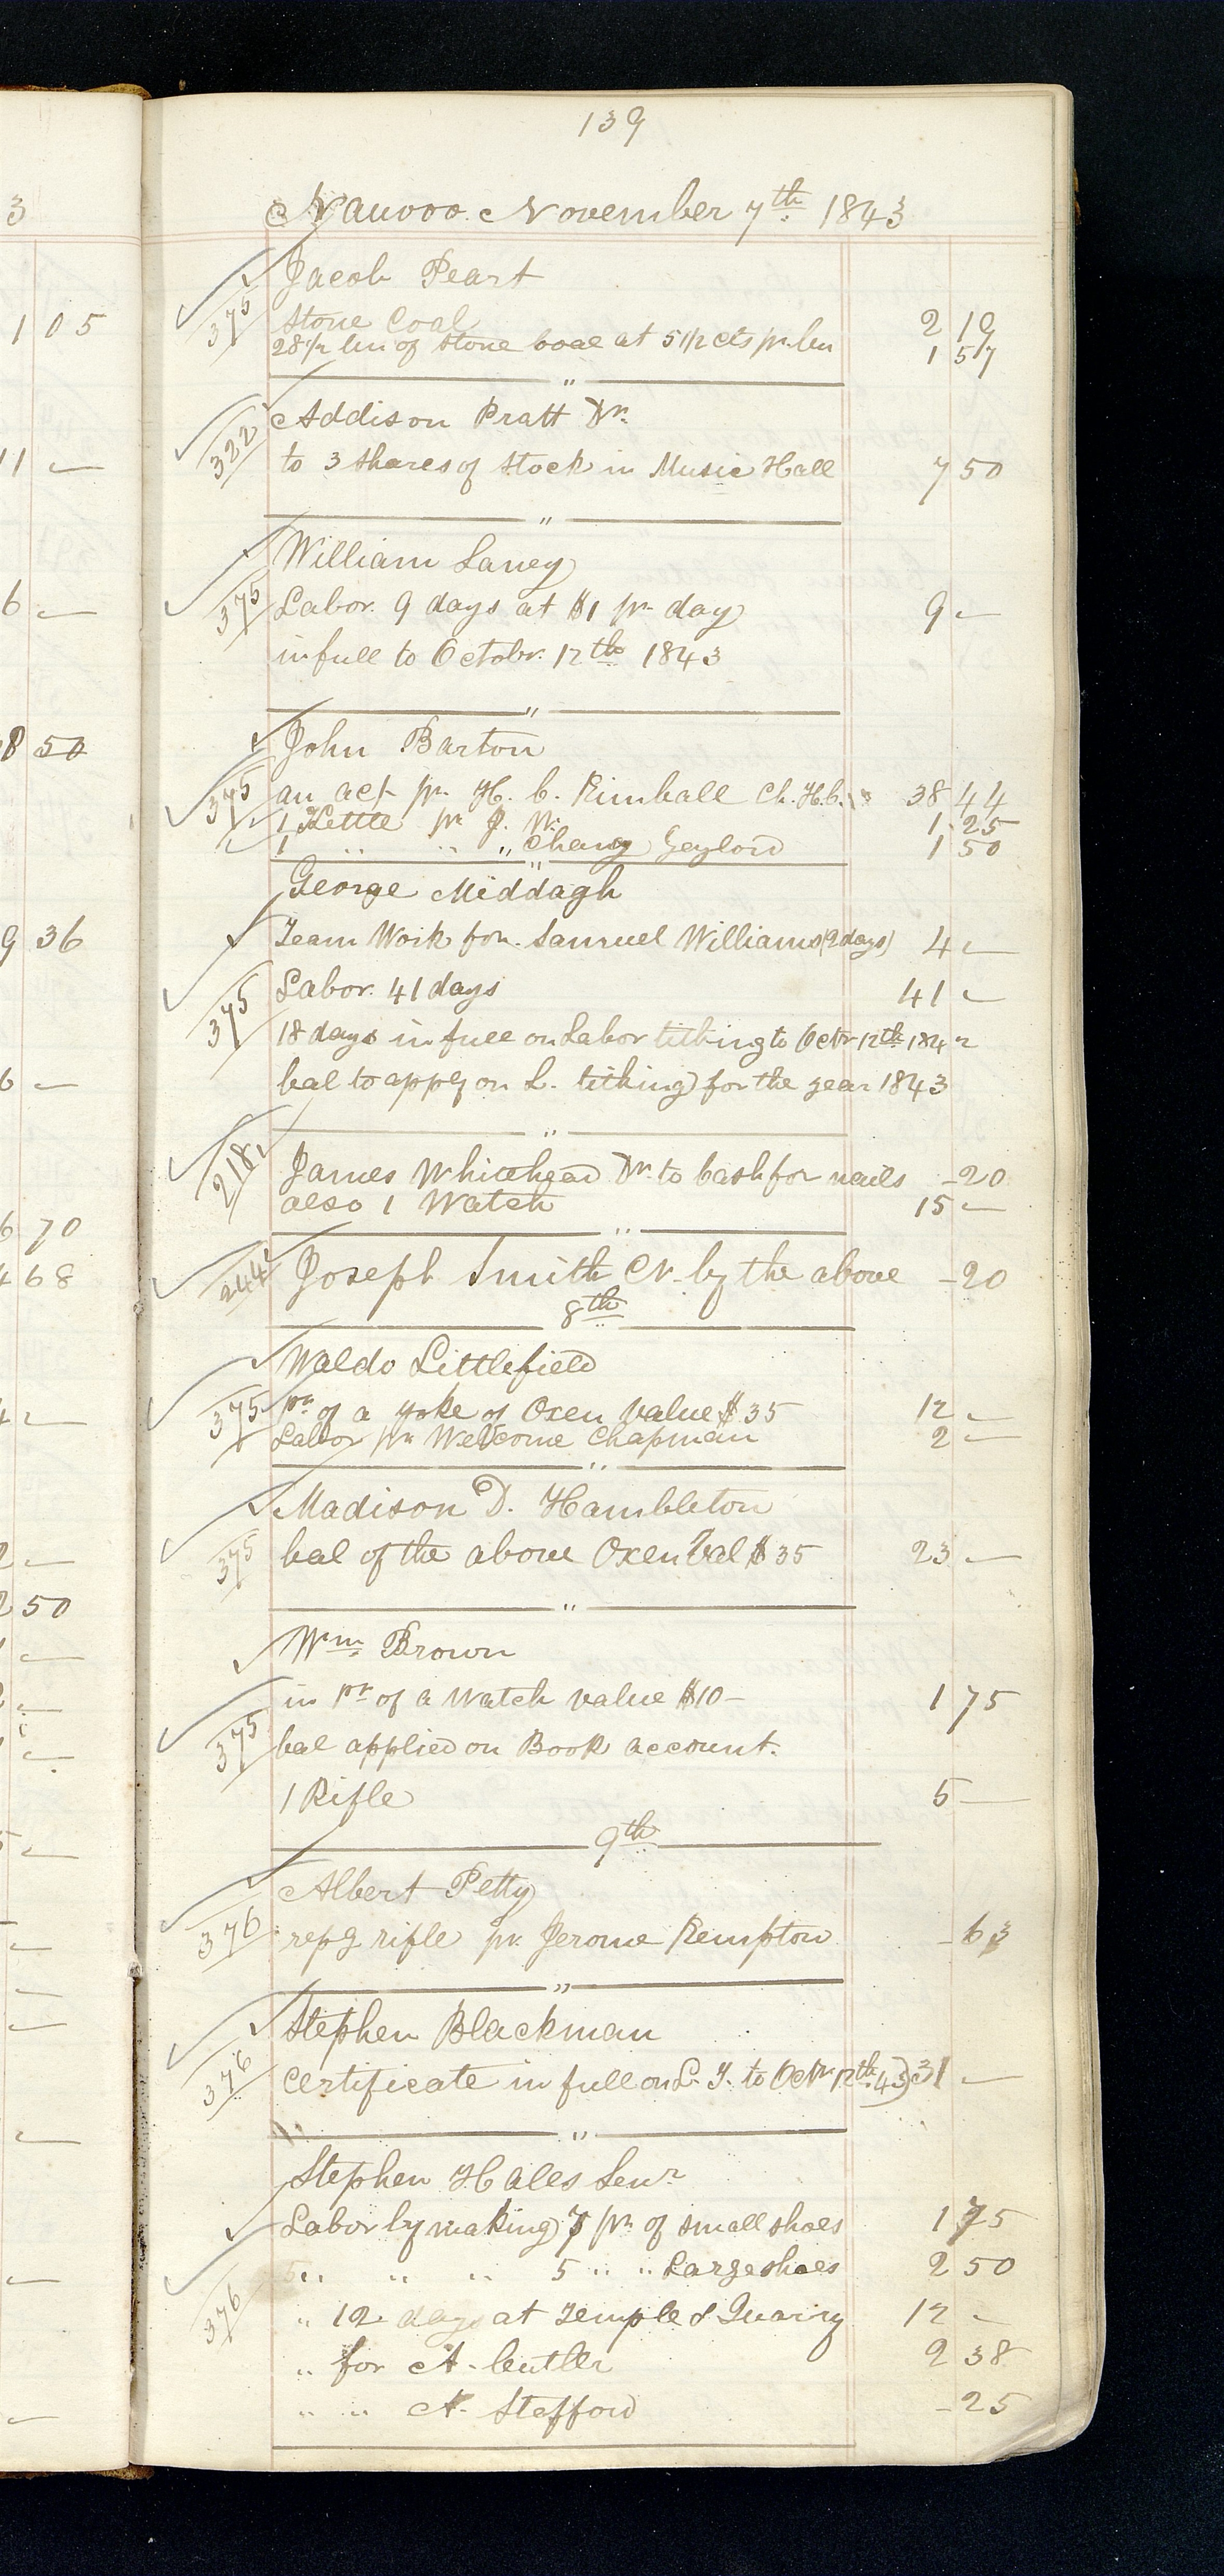 139
3
Nauvoo. November 7th 1843
Jacob Peart
375
Stone Coal 2 19
105
28 1/2 bu of Stone coal at 5 1/2 cts pr bu 1 57
"
Addison Pratt Dr.
322
to 3 Shares of Stock in Music Hall 7 50
11 —
"
William Laney
375
Labor. 9 days at $1 pr day 9 —
6 —
in full to Octobr. 12th 1843
"
John Barton
8 50
375
an act pr H. C. Kimball Ch. H.C. 38 44
1 Kettle pr J. W. 1 25
1 " " " Chancy Gaylord 1 50
"
George Middagh
Team Work for Samuel Williams (2 days) 4 —
9 36
Labor. 41 days 41 —
375
18 days in full on Labor tithing to Octr 12th 1842
bal to apply on L. tithing for the year 1843
6 —
"
218
James Whitehead Dr. to Cash for nails - 20
also 1 Watch 15 —
6 70
"
244
Joseph Smith Cr. by the above - 20
4 68
8th
Waldo Littlefield
375
pr of a yoke of Oxen Value $35 12 —
Labor pr Welcome Chapman 2 —
"
Madison D. Hambleton
375
bal of the above Oxen Val $35 23 —
2 —
2 50
"
Wm Brown
in pt of a Watch value $10 - 1 75
375
bal applied on Book account.
1 Rifle 5 —
9th
Albert Petty
376
repg rifle pr. Jerome Kempton - 63
"
Stephen Blackman
376
Certificate in full on L. T. to Octr 12th 43) 31 —
"
Stephen Hales Senr
Labor by making 7 pr of small shoes 1 75
" " " 5 " " Large shoes 2 50
376
" 12 days at Temple & Quarry 12 -
" for A. Cutler 2 38
" " A. Stafford - 25